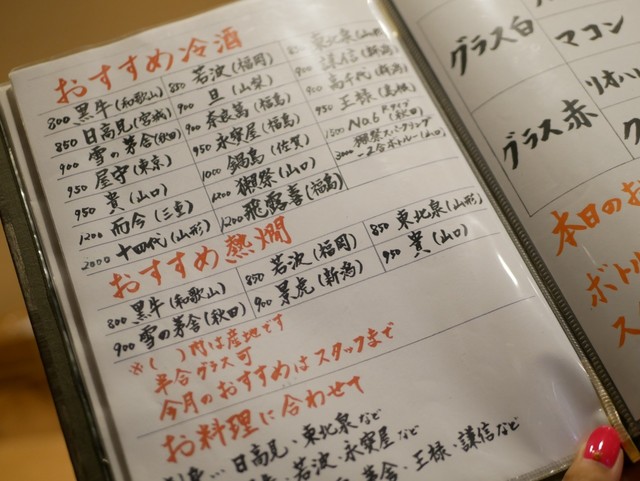 おすすめ冷酒
800 黒牛(和歌山) 850 若波(福岡) 850 東北泉(山形)
850 日高見(宮城) 900 旦(山梨) 900 謙信(新潟)
900 雪の茅舎(秋田) 900 奈良萬(福島) 900 高千代(新潟)
950 屋守(東京) 950 永宝屋(福島) 950 王祿(島根)
950 貴(山口) 1000 鍋島(佐賀) 1500 No.6 Rタイプ(秋田)
1200 而今(三重) 1200 獺祭(山口) 3000 獺祭スパークリング-2合ボトル-(山口)
2000 十四代(山形) 1200 飛露喜(福島)
おすすめ熱燗
800 黒牛(和歌山) 850 若波(福岡) 850 東北泉(山形)
900 雪の茅舎(秋田) 900 景虎(新潟) 950 貴(山口)
※( )内は産地です
半合グラス可
今月のおすすめはスタッフまで
お料理に合わせて
日高見・東北泉など
若波・永宝屋など
茅舎・王祿・謙信など
グラス白
マコン
グラス赤
リオハ
本日のお
ボトル
ス